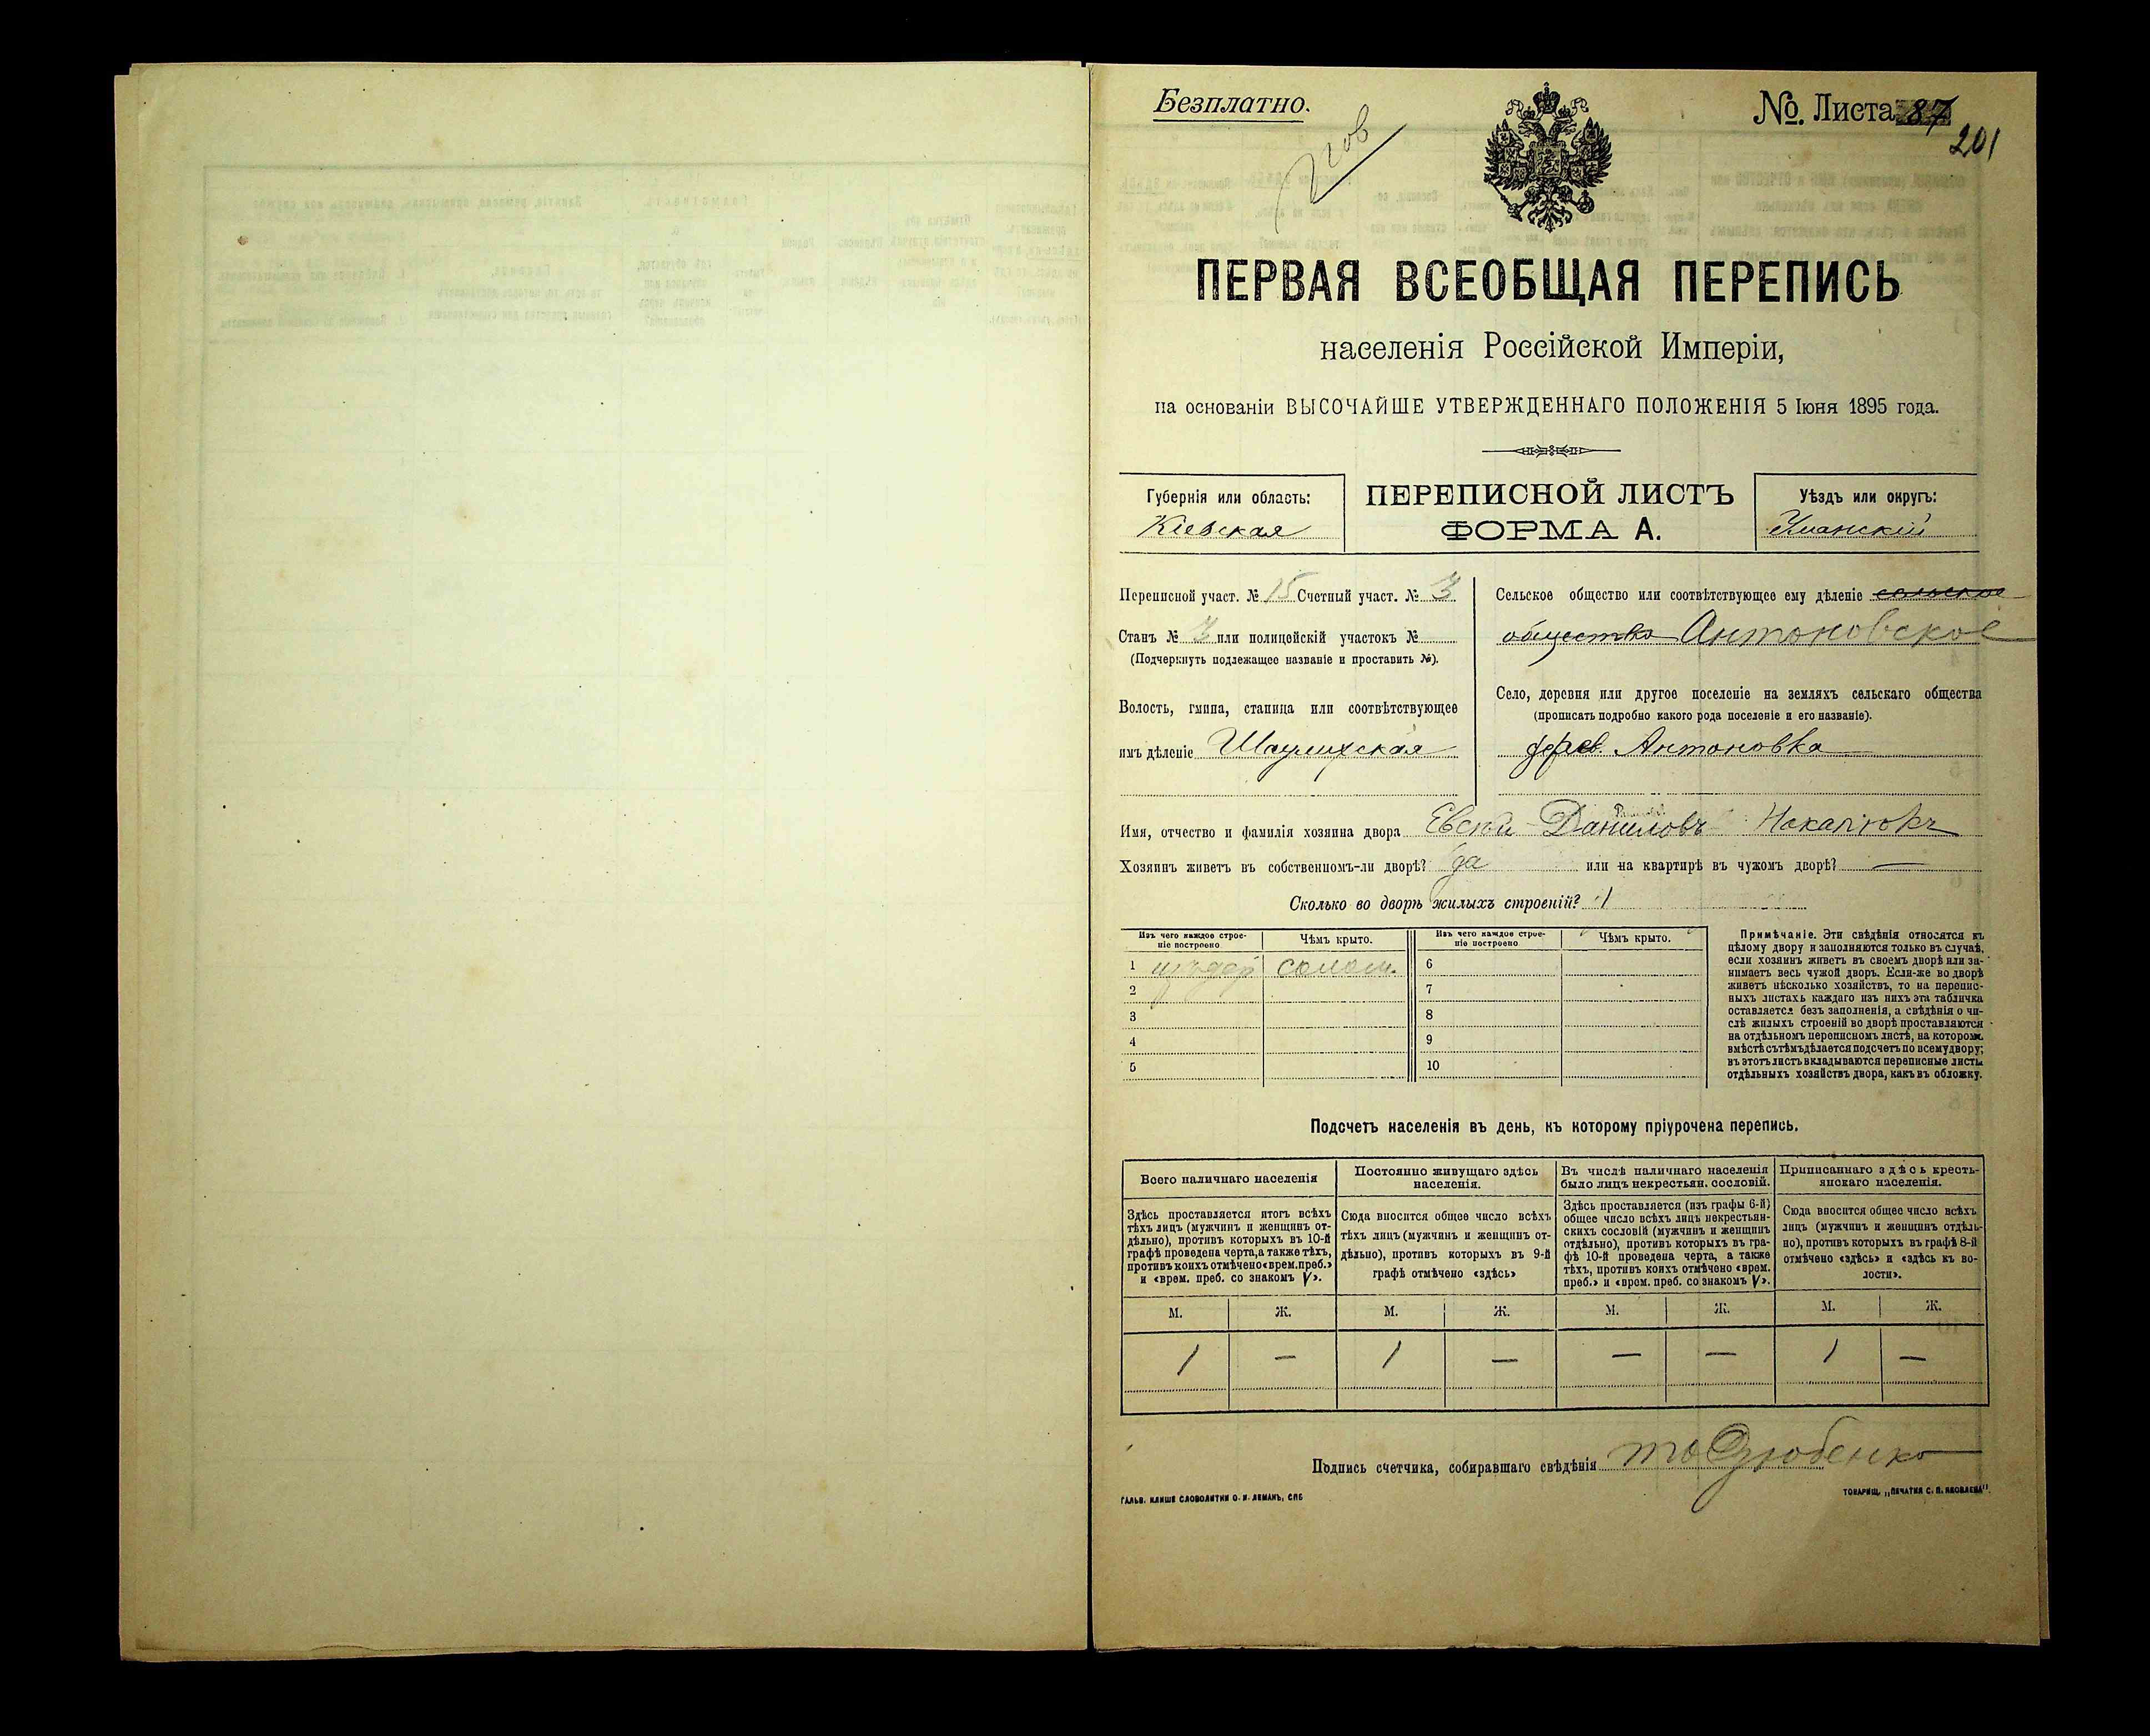 Безплатно.
№ Листа 87
201
ПЕРВАЯ ВСЕОБЩАЯ ПЕРЕПИСЬ
населенія Россійской Имперіи,
на основаніи ВЫСОЧАЙШЕ УТВЕРЖДЕННАГО ПОЛОЖЕНІЯ 5 Іюня 1895 года.
Губернія или область:
Кіевская
ПЕРЕПИСНОЙ ЛИСТЪ
ФОРМА А.
Уѣздъ или округъ:
Уманскій
Переписной участ. № 15 Счетный участ. № 3
Станъ № 3 или полицейскій участокъ №
(Подчеркнуть подлежащее названіе и проставить №).
Волость, гмина, станица или соотвѣтствующее
имъ дѣленіе
Сельское общество или соотвѣтствующее ему дѣленіе сельское
общество Антоновское
Село, деревня или другое поселеніе на земляхъ сельскаго общества
(прописать подробно какого рода поселеніе и его названіе).
дерев. Антоновка
Имя, отчество и фамилія хозяина двора Даниловъ
Хозяинъ живетъ въ собственномъ-ли дворѣ? да или на квартирѣ въ чужомъ дворѣ? —
Сколько во дворѣ жилыхъ строеній? 1
Изъ чего каждое строе-
ніе построено
Чѣмъ крыто.
Изъ чего каждое строе-
ніе построено
Чѣмъ крыто.
1 солом. 6
2 7
3 8
4 9
5 10
Примѣчаніе. Эти свѣдѣнія относятся къ
цѣлому двору и заполняются только въ случаѣ,
если хозяинъ живетъ въ своемъ дворѣ или за-
нимаетъ весь чужой дворъ. Если-же во дворѣ
живетъ нѣсколько хозяйствъ, то на перепис-
ныхъ листахъ каждаго изъ нихъ эта табличка
оставляется безъ заполненія, а свѣдѣнія о чи-
слѣ жилыхъ строеній во дворѣ проставляются
на отдѣльномъ переписномъ листѣ, на которомъ
вмѣстѣ съ тѣмъ дѣлается подсчетъ по всему двору;
въ этотъ листъ вкладываются переписные листы
отдѣльныхъ хозяйствъ двора, какъ въ обложку.
Подсчетъ населенія въ день, къ которому пріурочена перепись.
Всего наличнаго населенія
Здѣсь проставляется итогъ всѣхъ
тѣхъ лицъ (мужчинъ и женщинъ от-
дѣльно), противъ которыхъ въ 10-й
графѣ проведена черта, а также тѣхъ,
противъ коихъ отмѣчено «врем. преб.»
и «врем. преб. со знакомъ V».
Постоянно живущаго здѣсь
населенія.
Сюда вносится общее число всѣхъ
тѣхъ лицъ (мужчинъ и женщинъ от-
дѣльно), противъ которыхъ въ 9-й
графѣ отмѣчено «здѣсь»
Въ числѣ наличнаго населенія
было лицъ некрестьян. сословій.
Здѣсь проставляется (изъ графы 6-й)
общее число всѣхъ лицъ некрестьян-
скихъ сословій (мужчинъ и женщинъ
отдѣльно), противъ которыхъ въ гра-
фѣ 10-й проведена черта, а также
тѣхъ, противъ коихъ отмѣчено «врем.
преб.» и «врем. преб. со знакомъ V».
Приписаннаго здѣсь кресть-
янскаго населенія.
Сюда вносится общее число всѣхъ
лицъ (мужчинъ и женщинъ отдѣль-
но), противъ которыхъ въ графѣ 8-й
отмѣчено «здѣсь» и «здѣсь къ во-
лости».
М. Ж. М. Ж. М. Ж. М. Ж.
1 — 1 — — — 1 —
Подпись счетчика, собиравшаго свѣдѣнія Дзюбенко
ГАЛЬВ. КЛИШЕ СЛОВОЛИТНИ О. И. ЛЕМАНЪ, СПБ
ТОВАРИЩ. „ПЕЧАТНЯ С. П. ЯКОВЛЕВА".